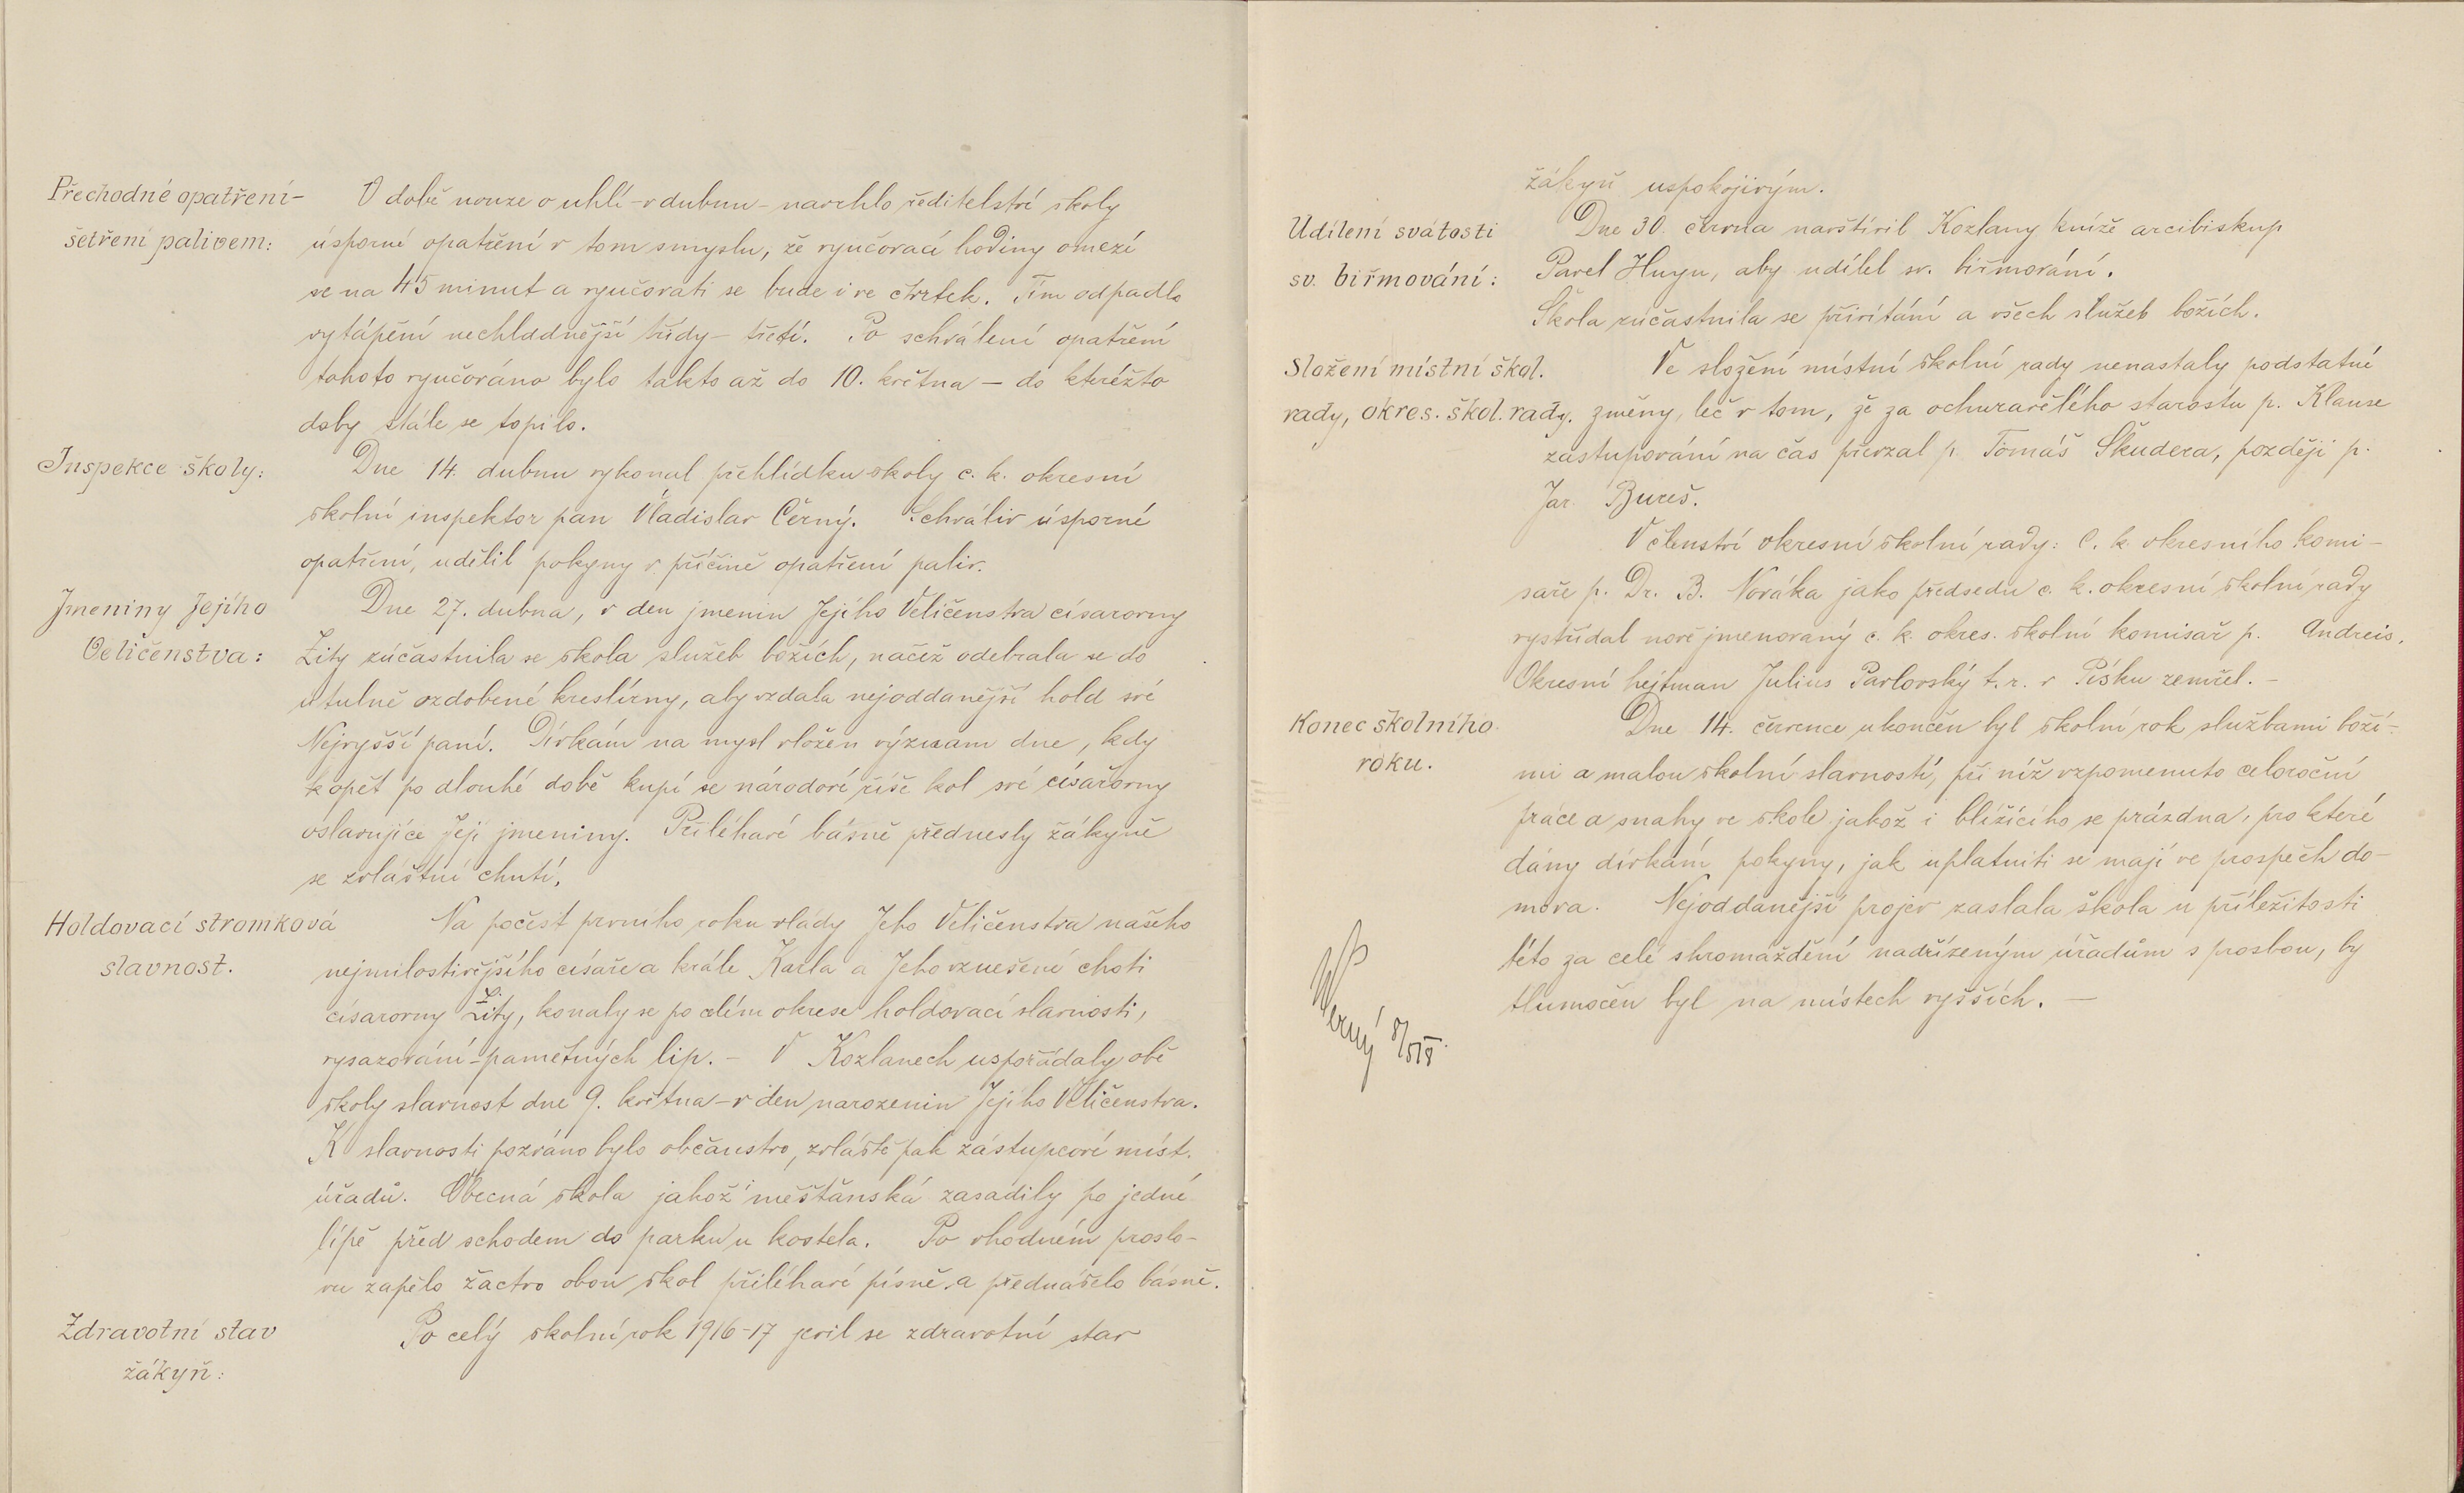 Přechodné opatření-
šetření palivem:
V době nouze o uhlí - v dubnu - navrhlo ředitelství školy
úsporné opatření v tom smyslu, že vyučovací hodiny omezí
se na 45 minut a vyučovati se bude i ve čtvrtek. Tím odpadlo
vytápění nechladnější třídy - třetí. Po schválení opatření
tohoto vyučováno bylo takto až do 10. května - do kteréžto
doby stále se topilo.
Inspekce školy:
Dne 14. dubnu vykonal přehlídku školy c. k. okresní
školní inspektor pan Vladislav Černý. Schváliv úsporné
opatření, udělil pokyny v příčině opatření paliv.
Jmeniny Jejího
Veličenstva:
Dne 27. dubna, v den jmenin Jejího Veličenstva císařovny
Zity zúčastnila se škola služeb božích, načež odebrala se do
útulně ozdobené kreslírny, aby vzdala nejoddanější hold své
Nejvyšší paní. Dívkám na mysl vložen význam dne, kdy
opět po dlouhé době kupí se národové říše kol své císařovny
oslavujíce Její jmeniny. Přiléhavé básně přednesly žákyně
se zvláštní chutí.
Holdovací stromková
slavnost.
Na počest prvního roku vlády Jeho Veličenstva našeho
nejmilostivějšího císaře a krále Karla a Jeho vznešené choti
císařovny Zity, konaly se po celém okrese holdovací slavnosti,
vysazování - pamětných lip. - V Kozlanech uspořádaly obě
školy slavnost dne 9. května - v den narozenin Jejího Veličenstva.
K slavnosti pozváno bylo občanstvo, zvláště pak zástupcové míst.
úřadů. Obecná škola jakož i měšťanská zasadily po jedné
lípě před schodem do parku u kostela. Po vhodném proslo-
vu zapělo žactvo obou škol přiléhavé písně a přednášelo básně.
Zdravotní stav
žákyň:
Po celý školní rok 1916-17 jevil se zdravotní stav
žákyň uspokojivým.
Udílení svátosti
sv. biřmování:
Dne 30. června navštívil Kozlany kníže arcibiskup
Pavel Huyn, aby udílel sv. biřmování.
Škola zúčastnila se přivítání a všech služeb božích.
Složení místní škol.
rady, okres. škol. rady.
Ve složení místní školní rady nenastaly podstatné
změny, leč v tom, že za ochuravělého starostu p. Klause
zastupování na čas převzal p. Tomáš Škudera, později p.
Jar. Bureš.
V členství okresní školní rady: C. k. okresního komi-
saře p. Dr. B. Nováka jako předsedu c. k. okresní školní rady
vystřídal nově jmenovaný c. k. okres. školní komisař p. Andreis.
Okresní hejtman Julius Pavlovský t. r. v Písku zemřel. -
Konec školního
roku.
Dne 14. července ukončen byl školní rok službami boží-
mi a malou školní slavností, při níž vzpomenuto celoroční
práce a snahy ve škole jakož i blížícího se prázdna, pro které
dány dívkám pokyny, jak uplatniti se mají ve prospěch do-
mova. Nejoddanější projev zaslala škola u příležitosti
této za celé shromáždění nadřízeným úřadům s prosbou, by
tlumočen byl na místech vyšších. -
Černý